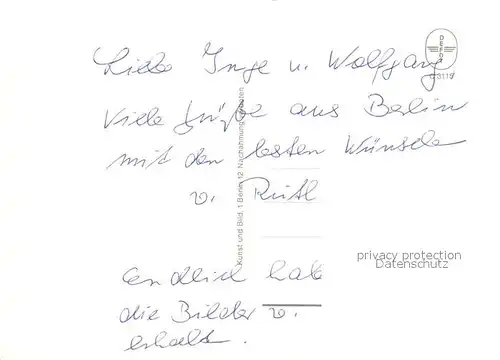 Liebe Inge u. Wolfgang
Viele Grüße aus Berlin
mit den besten Wünschen
v. Ruth
endlich hab
die Bilder v.
erhalt.
Kunst und Bild, 1 Berlin 12 Nachahmung verboten
privacy protection
Datenschutz